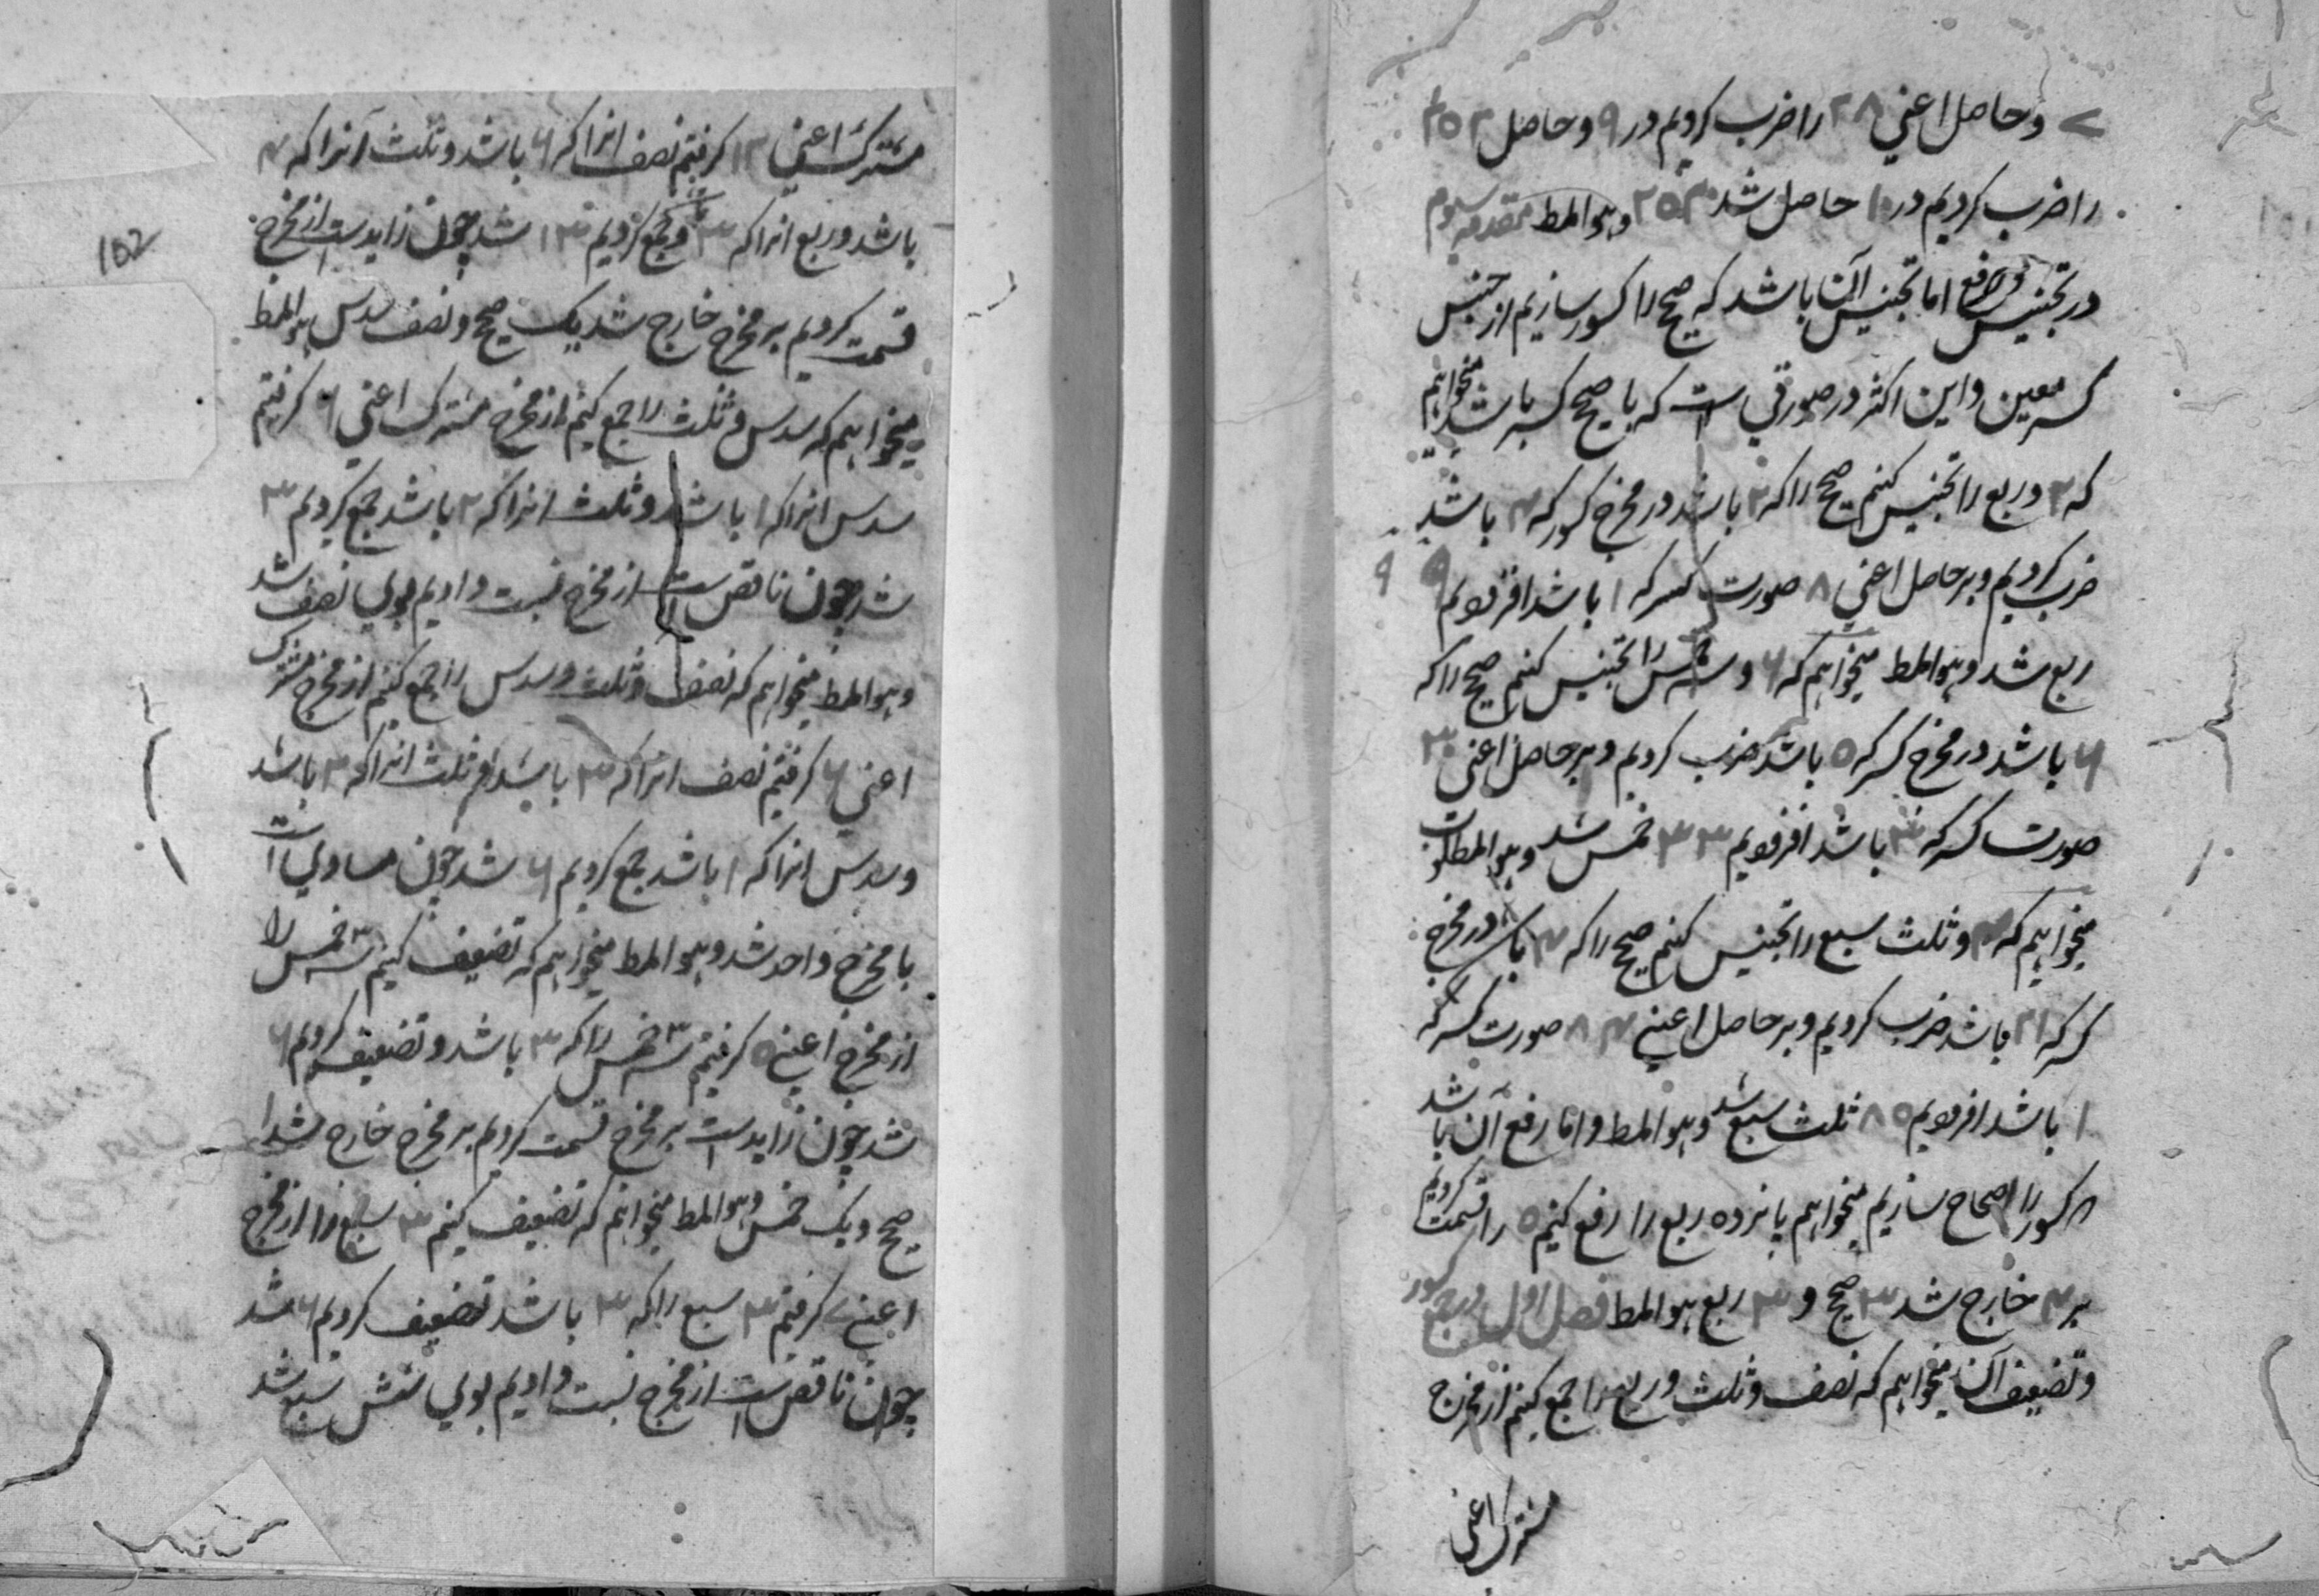 ۷ وحاصل اعنی ۲۸ را ضرب کردیم در ۹ وحاصل ۲۵۲
را ضرب کردیم در ۱۰ حاصل شد ۲۵۲۰ وهو المط مقدمه سوم
در تجنیس ورفع اما تجنیس آن باشد که صحیح را کسور سازیم از جنس
کسر معین واین اکثر در صورتی است که با صحیح کسر باشد میخواهم
که ۲ وربع را تجنیس کنم صحیح را که ۲ باشد در مخرج کسور که ۴ باشد
ضرب کردیم وبر حاصل اعنی ۸ صورت کسر که ۱ باشد افزودیم ۹ ۹
ربع شد وهو المط میخواهم که ۶ و سه خمس را تجنیس کنم صحیح را که
۶ باشد در مخرج کسر که ۵ باشد ضرب کردیم وبر حاصل اعنی ۳۰
صورت کسر که ۳ باشد افزودیم ۳۳ خمس شد وهو المطلوب
میخواهیم که ۴ وثلث سبع را تجنیس کنم صحیح را که ۴ باشد در مخرج
کسر که ۲۱ باشد ضرب کردیم وبر حاصل اعنی ۸۴ صورت کسر که
۱ باشد افزودیم ۸۵ ثلث سبع شد وهو المط واما رفع آن باشد
کسور را صحاح سازیم میخواهم پانزده ربع را رفع کنیم ۱۵ را قسمت کردیم
بر ۴ خارج شد ۳ صحیح و ۳ ربع هو المط فصل اول در جمع کسور
وتضعیف آن میخواهم که نصف وثلث وربع را جمع کنم از مخرج
مشترک اعنی
مشترک اعنی ۱۲ کرفتیم نصف انرا که ۶ باشد وثلث آنرا که ۴
باشد وربع انرا که ۳ وجمع کردیم ۱۳ شد چون زاید است از مخرج
قسمت کردیم بر مخرج خارج شد یک صحیح ونصف سدس هو المط
میخواهیم که سدس وثلث را جمع کنیم از مخرج مشترک اعنی ۶ کرفتیم
سدس انرا که ۱ باشد وثلث انرا که ۲ باشد جمع کردیم ۳
شد چون ناقص است از مخرج نسبت دادیم بوی نصف شد
وهو المط میخواهم که نصف وثلث وسدس را جمع کنم از مخرج مشترک
اعنی ۶ کرفتیم نصف انرا که ۳ باشد وثلث انرا که ۲ باشد
وسدس انرا که ۱ باشد جمع کردیم ۶ شد چون مساوی است
با مخرج واحد شد وهو المط میخواهم که تضعیف کنیم سه خمس را
از مخرج اعنی ۵ کرفتیم سه خمس را که ۳ باشد وتضعیف کردیم ۶
شد چون زاید است بر مخرج قسمت کردیم بر مخرج خارج شد ۱
صحیح ویک خمس وهو المط میخواهم که تضعیف کنیم ۳ سبع را از مخرج
اعنی ۷ کرفتیم ۳ سبع را که ۳ باشد تضعیف کردیم ۶ شد
چون ناقص است از مخرج نسبت دادیم بوی شش سبع شد
102